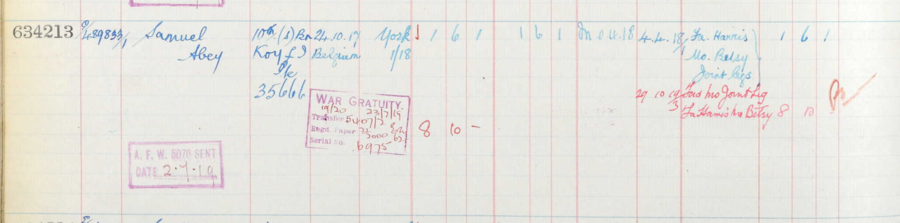 634213 E/489833/1 Samuel 10th (S) Bn 24.10.17 York 1 1 6 1 1 6 1 4.18 4.4.18 Fa. Harris 1 6 1
Abey Koyli Belgium 1/18 Mo. Betsy
Pte Joint Legs
35666 29.10.19 Fa & Mo Joint Leg
Fa Harris Mo Betsy 8 10
WAR GRATUITY.
19/20 22/7/19
Transfer 5407/2
Regtl. Paper
Serial No. 6975
8 10 -
A. F. W. 5070 SENT
DATE 2-7-19